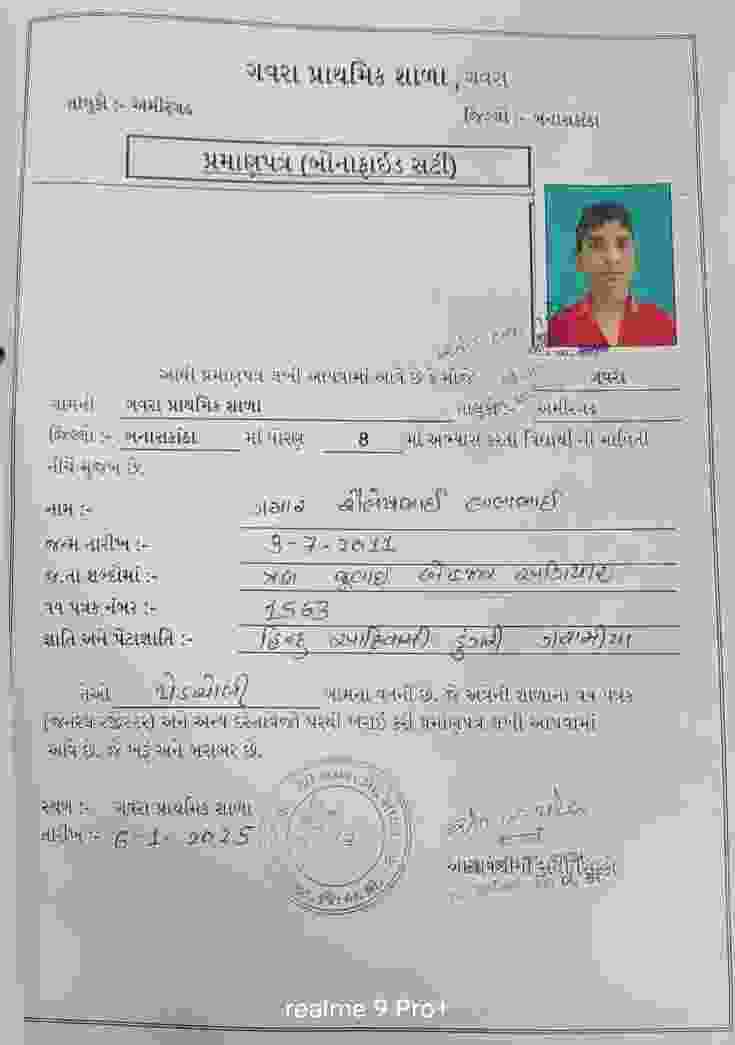 ગવરા પ્રાથમિક શાળા , ગવરા
તાલુકો :- અમીરગઢ
જિલ્લો :- બનાસકાંઠા
પ્રમાણપત્ર (બોનાફાઈડ સર્ટી)
આથી પ્રમાણપત્ર લખી આપવામાં આવે છે કે મોજે ગવરા
ગામની ગવરા પ્રાથમિક શાળા તાલુકો:- અમીરગઢ
જિલ્લો :- બનાસકાંઠા માં ધોરણ 8 માં અભ્યાસ કરતા વિદ્યાર્થી ની માહિતી
નીચે મુજબ છે.
નામ :- શૈલેષભાઈ લાલાભાઈ
જન્મ તારીખ :- 3-7-2011
જ.તા શબ્દોમાં :- ત્રણ જુલાઈ બેહજાર અગિયાર
વય પત્રક નંબર :- 1563
જ્ઞાતિ અને પેટાજ્ઞાતિ :- હિન્દુ આદિવાસી ડુંગરી ગરાસીયા
તેઓ ગામના વતની છે. જે અત્રેની શાળાના વય પત્રક
(જનરલ રજીસ્ટર) અને અન્ય દસ્તાવેજો પરથી ખરાઈ કરી પ્રમાણપત્ર લખી આપવામાં
આવે છે. જે ખરું અને બરાબર છે.
સ્થળ :- ગવરા પ્રાથમિક શાળા
તારીખ :- 6-1-2025
realme 9 Pro+